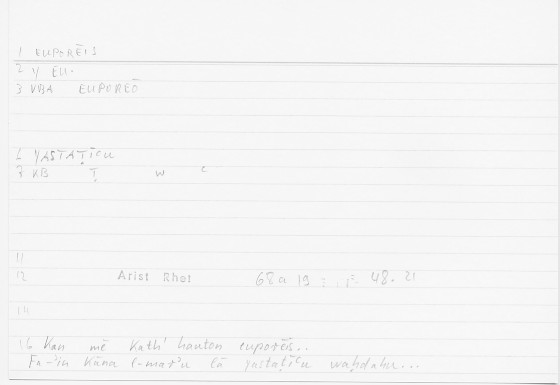 1 EUPORĒIS
2 y EU.
3 VBA EUPOREŌ
6 YASTAṬĪCU
7 KB Ṭ W C
11
12 Arist Rhet 68a 19 = 48. 21
14
16 Kan mē Kath' hauton euporēis..
Fa-'in Kāna l-mar'u lā yastaṭīcu waḥdahu...